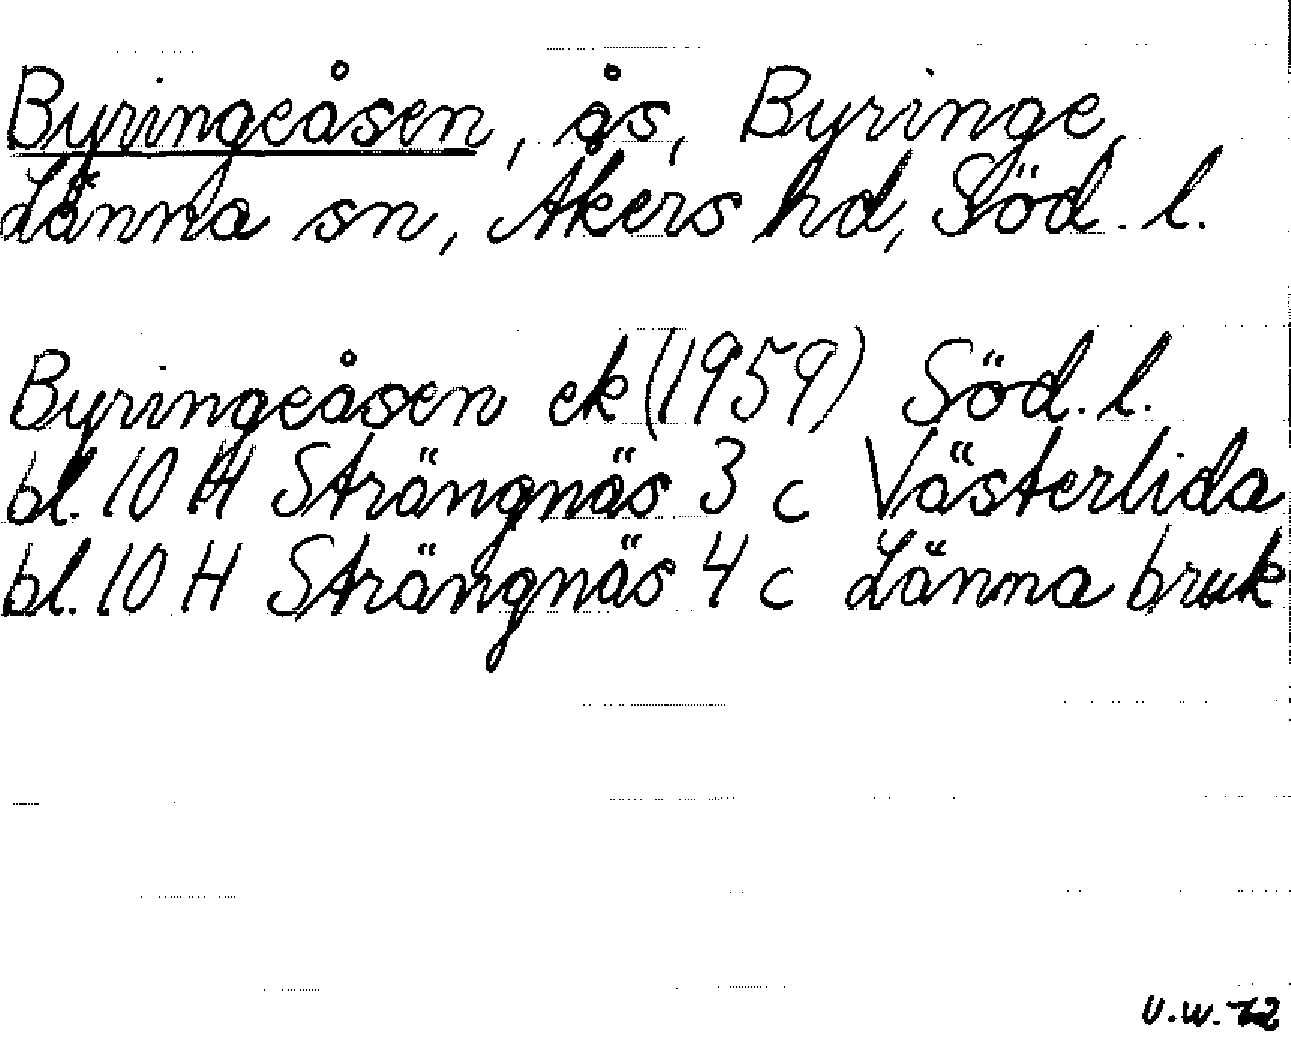 Byringeåsen, ås, Byringe,
Länna sn, Åkers hd, Söd. l.
Byringeåsen ek (1959) Söd. l.
bl. 10 H Strängnäs 3 c Västerlida
bl. 10 H Strängnäs 4 c Länna bruk
U.W. 72